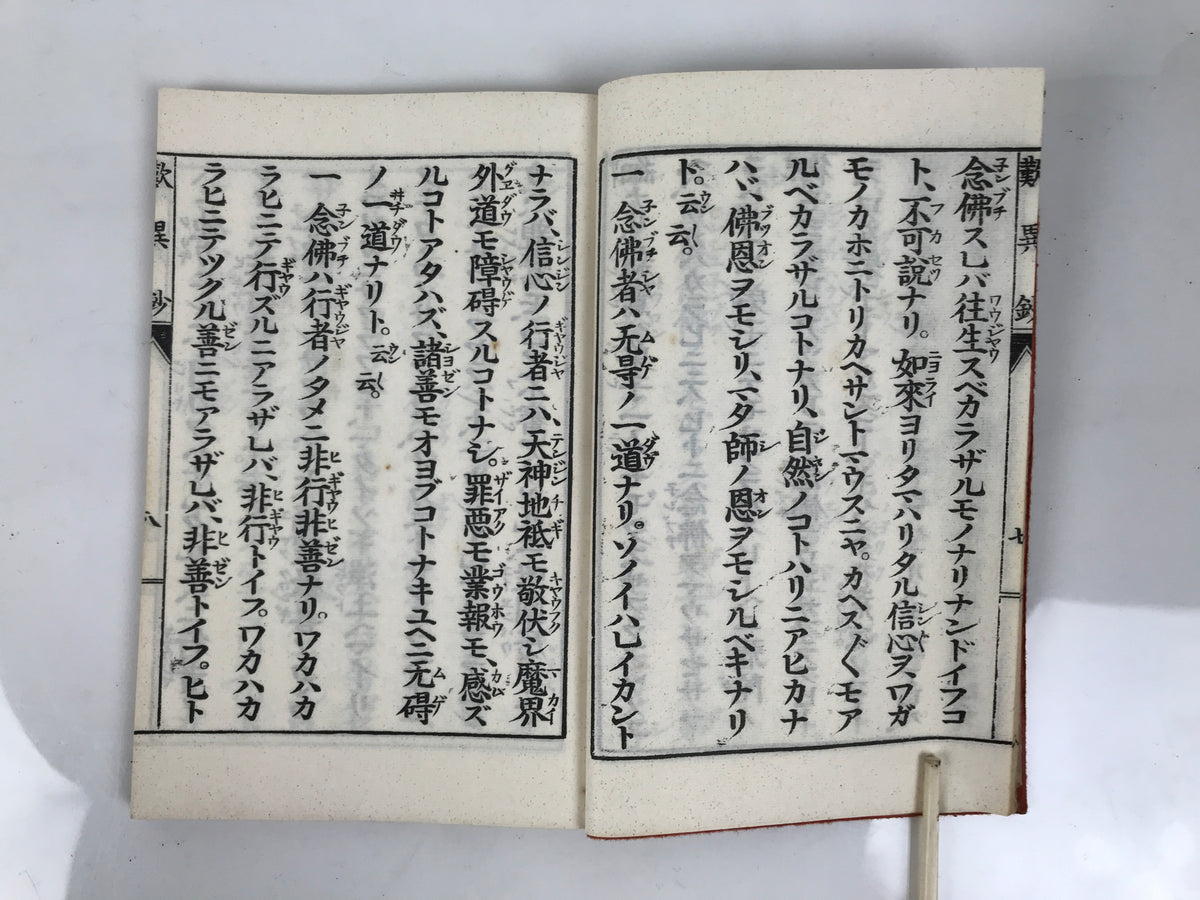 歎異鈔
七
念佛スレバ往生スベカラザルモノナリナンドイフコ
ト、不可説ナリ。如來ヨリタマハリタル信心ヲ、ワガ
モノカホニトリカヘサントマウスニヤ。カヘス〴〵モア
ルベカラザルコトナリ、自然ノコトハリニアヒカナ
ハヾ、佛恩ヲモシリ、マタ師ノ恩ヲモシルベキナリ
ト。云云。
一 念佛者ハ无㝵ノ一道ナリ。ソノイハレイカント
ナラバ、信心ノ行者ニハ、天神地祇モ敬伏シ魔界
外道モ障碍スルコトナシ。罪悪モ業報モ、感ズ
ルコトアタハズ、諸善モオヨブコトナキユヘニ无碍
ノ一道ナリト。云云。
一 念佛ハ行者ノタメニ非行非善ナリ。ワカハカ
ラヒニテ行ズルニアラザレバ、非行トイフ。ワカハカ
ラヒニテツクル善ニモアラザレバ、非善トイフ。ヒト
歎異鈔
八